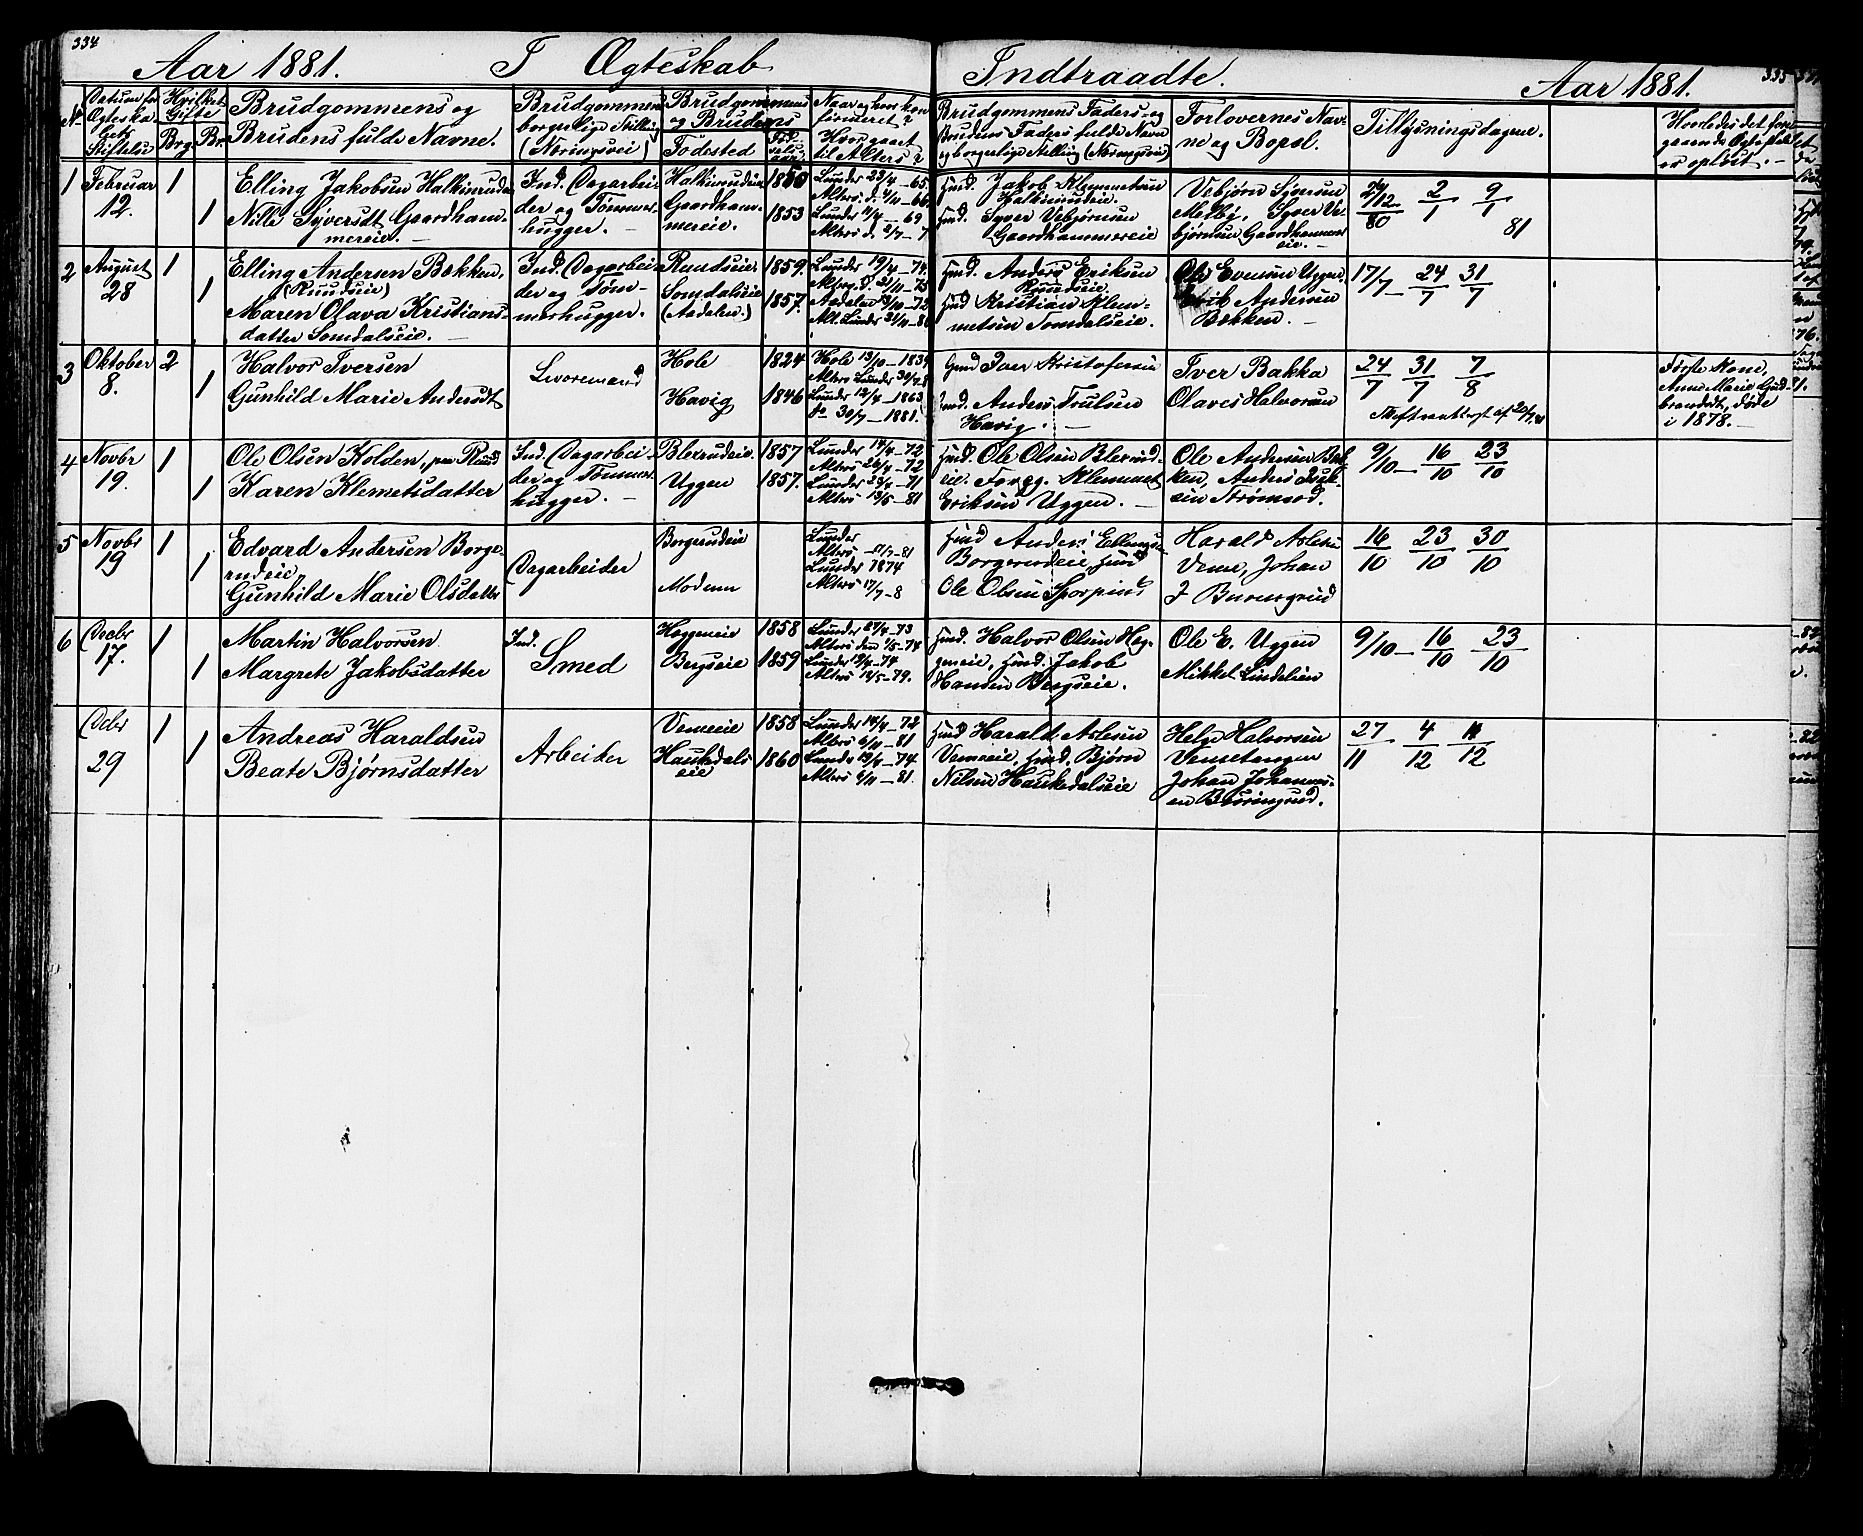 334
Aar 1881. I Ægteskab Indtraadte. Aar 1881. 335
No Datum for Ægteska- bets Stiftelse
Hvilket Gifte Brg. Br.
Brudgommens og
Brudens fulde Navne.
Brudgommens
borgerlige Stilling
(Næringsvei)
Brudgommens
og Brudens
Fødested
Naar og hvor kon-
firmeret?
Hvor gaaet
til Alters?
Brudgommens Faders og
Brudens Faders fulde Navn
og borgerlige Stilling (Næringsvei)
Forlovernes Nav-
ne og Bopæl.
Tillysningsdagene.
Hvorledes det fore-
gaaende Ægteskab
er opløst.
1 Februar
12.
1
1
Elling Jakobsen Halkinrudeie
Nille Syversdt Gaardham-
mereie.
Ind. Dagarbei-
der og Tømmer-
hugger.
Halkinrudeie
Gaardham-
mereie.
1850
1853
Lunder 23/4 - 65.
Lunder 11/4 - 69
Ind. Jakob Klemmetsen
Halkinrudeie.
Ind. Syver Vebjørnsen
Gaardhammereie
Vebjørn Syversen
Melby, Syver Ve-
bjørnsen Gaardhammer-
eie.
26/12 80 2/1 9/1
81
2 August
28
1
1
Elling Andersen Bækken,
(Ruudseie)
Maren Olava Kristians-
datter Somdalseie.
Ind. Dagarbei-
der og Tøm-
merhugger.
Ruudseie.
Somdalseie
(Aadalen.)
1859.
1857.
Lunder 19/4 - 74.
Ind. Anders Eriksen
Ruudseie.
Ind. Kristian Klem-
metsen Somdalseie.
Ole Evensen Uggen,
Erik Andersen
Bækken.
17/7 - 24/7 31/7
3 Oktober
8.
2
1
Halvor Iversen
Gunhild Marie Andersdt
Livoremand
Hole
Havig
1824
1846
Hole 13/10 - 1839
Lunder 12/4 - 1863
do 30/7 - 1881.
Gmd Iver Kristofersen
Ind. Anders Trulsen
Havig.
Iver Bakka
Olaves Halvorsen
24/7 31/7 7/8
Første Kone,
Anne Marie Gud-
brandsdt, døde
i 1878.
4 Novbr
19.
1
1
Ole Olsen Kolden,
Karen Klemetsdatter
Ind. Dagarbei-
der og Tømmer-
hugger.
Blexrudeie.
Uggen
1857
1857.
Lunder 14/4 - 72
Alters 26/4 - 72
Lunder 23/4 - 71
Alters 13/5 - 81
Ind. Ole Olsen Blexrud-
eie. Forpg. Klemmet
Eriksen Uggen.
Ole Andersen Bæk-
ken, Anders
Strømsod.
9/10 - 16/10 23/10
5 Novbr
19
1
1
Edvard Andersen Borge-
rudeie
Gunhild Marie Olsdatter
Dagarbeider
Borgerudeie
Modenn
Lunder
Alters 17/7 - 81
Lunder 1874
Alters 17/7 - 8
Ind Anders Ellingsen
Borgerudeie, Ind
Ole Olsen
Harald Aslesen
Veme, Johan
J Burensgrud
16/10 23/10 30/10
6 Decbr
17.
1
1
Martin Halvorsen
Margrete Jakobsdatter
Ind.
Smed
Heggeneie
Bergseie
1858
1859
Lunder 27/4 - 73
Alters den 1/5 - 74
Lunder 19/4 - 74
Alters 12/5 - 79.
Ind. Halvor Olsen Heg-
geneie, Ind. Jakob
Hansen Bergseie.
Ole E. Uggen
Mikkel Lindelien
9/10 - 16/10 23/10
Debr
29
1
1
Andreas Haraldsen
Beate Bjørnsdatter
Arbeider
Vemeeie
Haukedals-
eie
1858
1860
Lunder 14/4 - 72
Alters 6/11 - 81
Lunder 19/4 - 74.
Alters 6/11 - 81.
Ind Harald Aslesen
Vemeeie, Ind. Bjørn
Nilsen Haukedalseie
Helge Halvorsen
Vemetangen
Johan Johannes-
en Burensgrud.
27/11 4/12 11/12